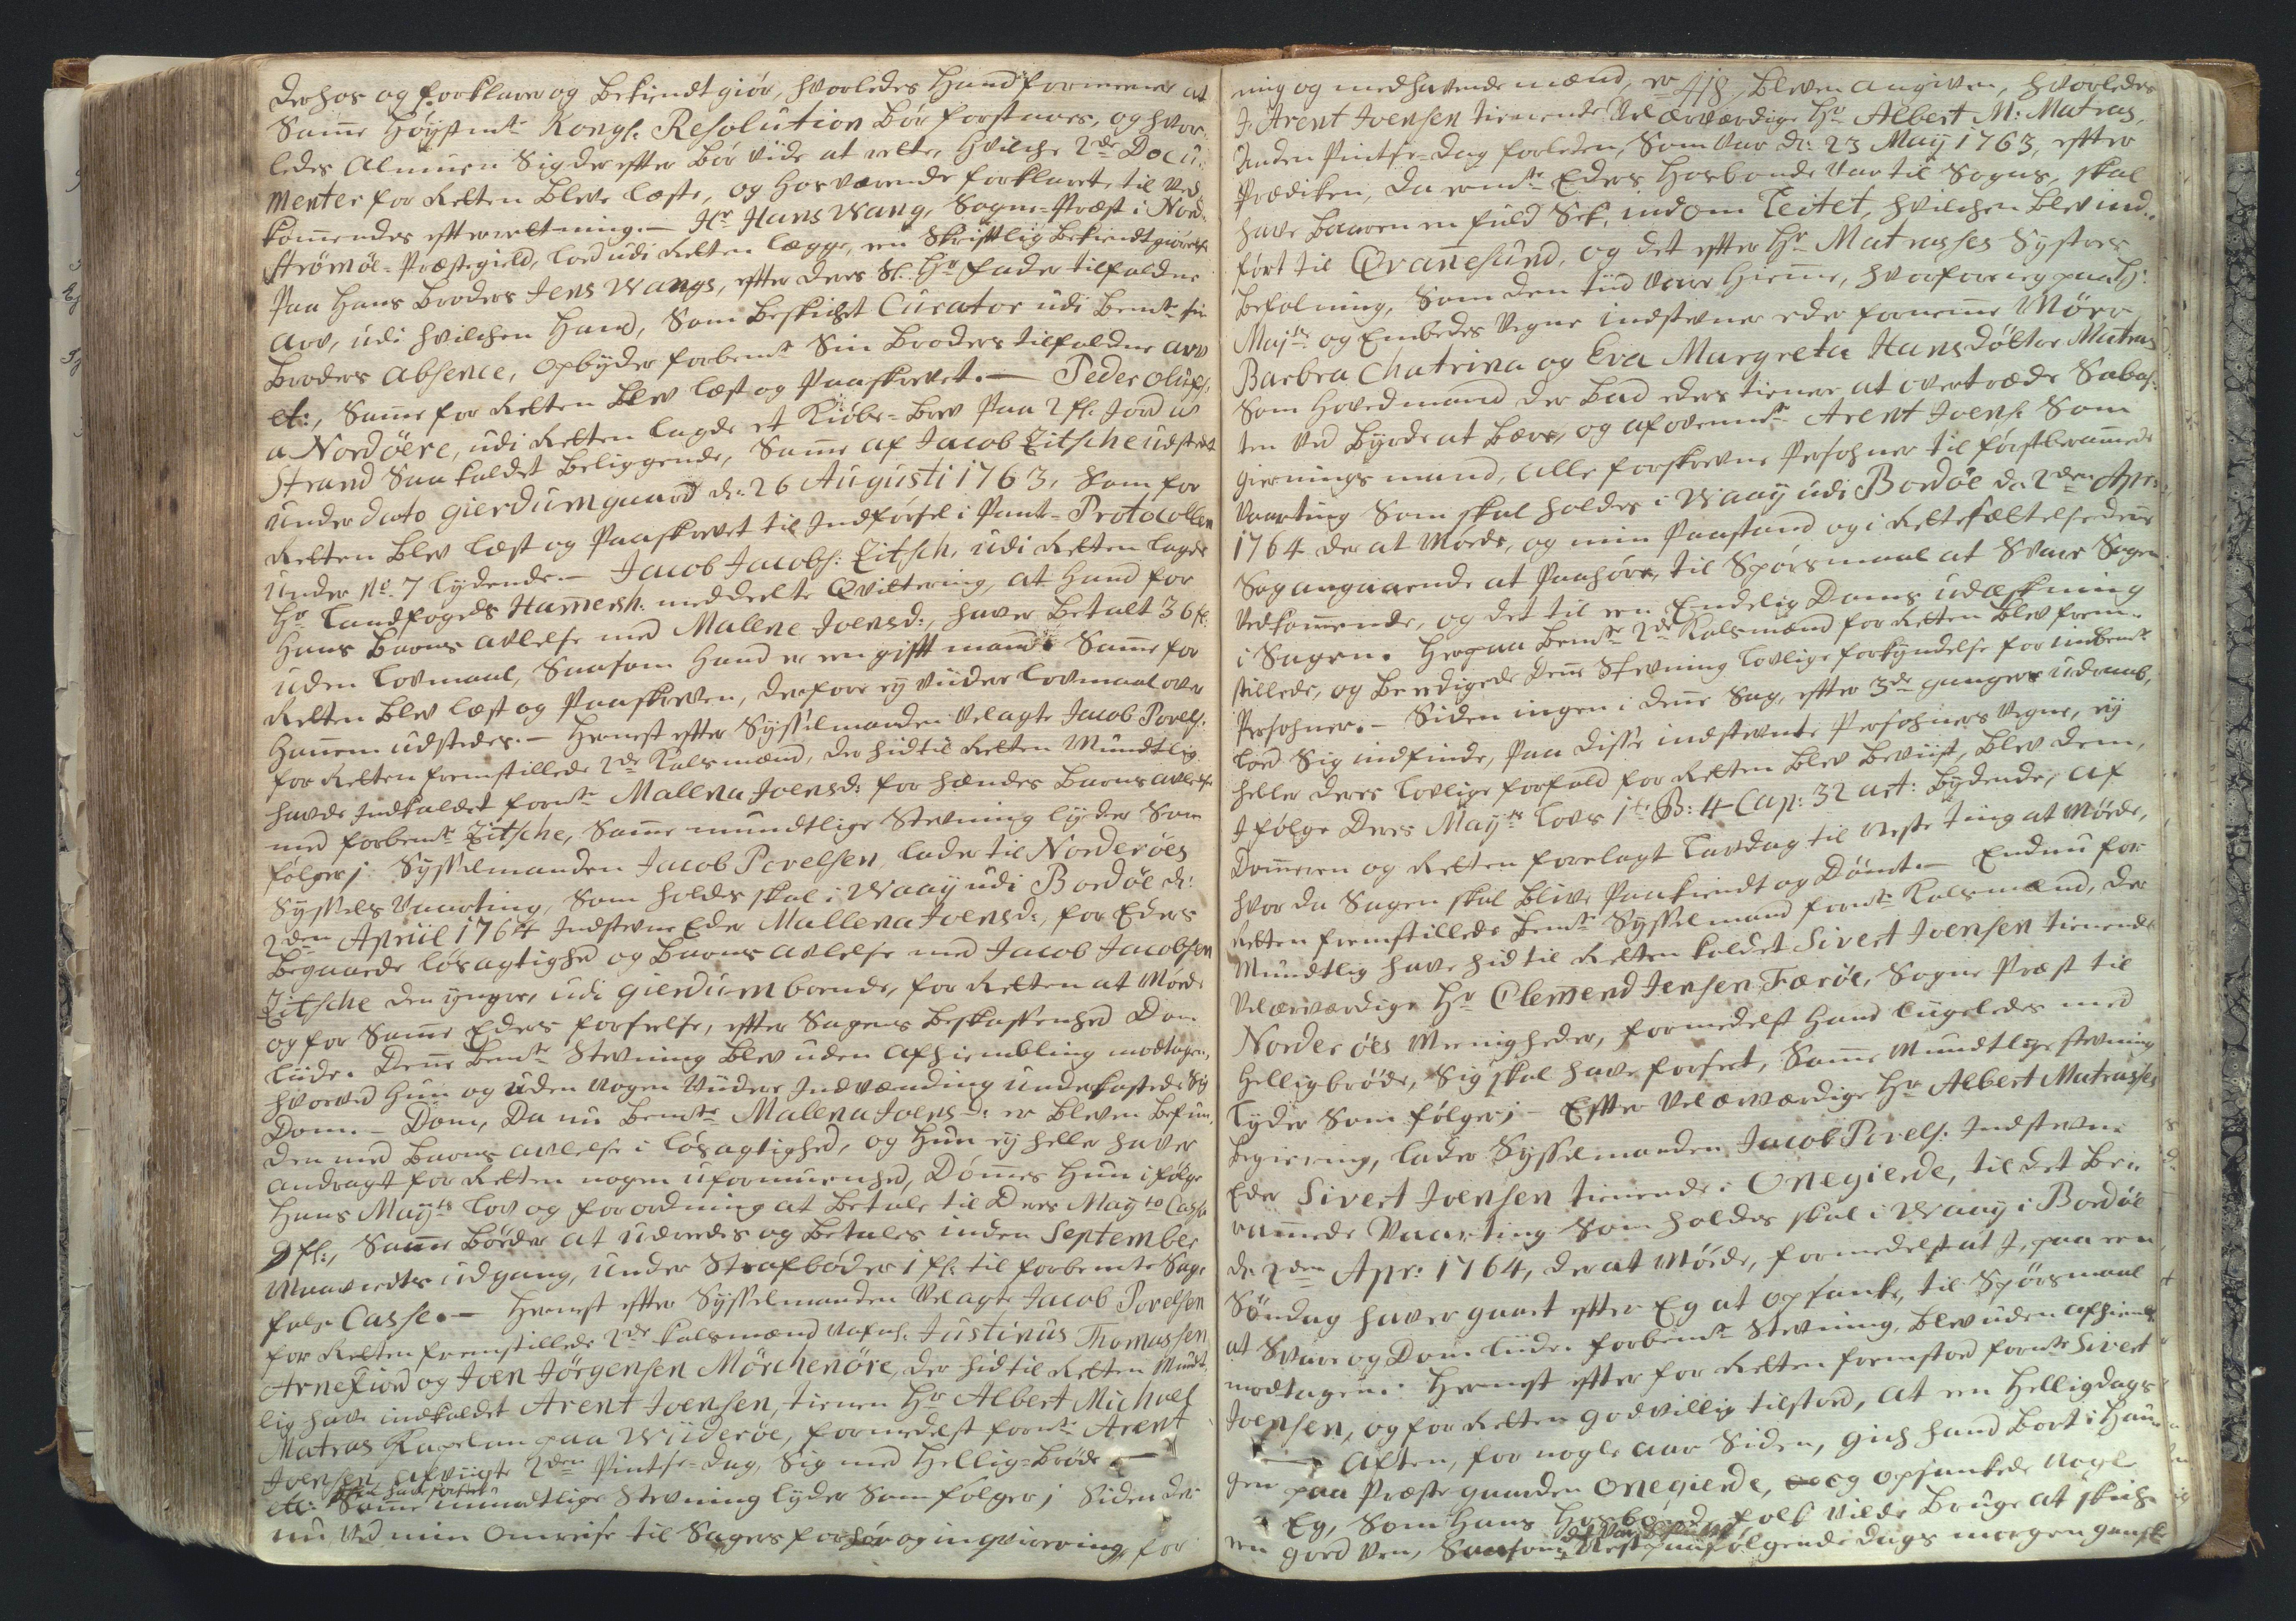 derhos og forklarer og bekiendtgiör, hvorledes Hand formener at
Samme Höystmte Kongl: Resolution bör forstaaes, og hvor-
ledes Almuen Sig derefter bör vide at rette, hvilche 2de Docu-
menter for Retten bleve læste, og hosværende forklaret, til Ved-
kommendes efterretning. — Hr Hans Wang, Sogne-Præst i Nord-
Strömöe-Præstegield, lod udi Retten lægge, en Skriftlig bekiendtgiörelse
Paa Hans Broders Jens Wangs, efter deres Sl: Hr Fader tilfaldne
Arv, udi hvilchen Hand, Som beskichet Curator udi bemte sin
Broders Absence, opbyder forbemte Sin Broders tilfaldne arv
etc:, Samme for Retten blev læst og Paaskrevet. — Peder Olufs:
a Nordöere, udi Retten lagde et Kiöbe-brev Paa 2 gl: Jord
Strand Saa kaldet beliggende, Samme af Jacob Zitsche udstedt
under dato Gierdumgaard d: 26 Augusti 1763, Som for
Retten blev læst og Paaskrevet til Indförsel i Pant-Protocollen
under No 7 lydende. — Jacob Jacobs: Zitsch, udi Retten lagde
Hr Landfogeds Hamersh: meddeelte Qvittering, at Hand for
Hans Barns avlelse med Malene Joensd:, haver betalt 36 gl:
uden Lovmaal, Saasom Hand er en gift mand. Samme for
Retten blev læst og Paaskreven, derfore ey viider Lovmaal over
Hannem udstedes. — Hernest efter Sysselmanden Velagte Jacob Povels:
for Retten fremstillede 2de Kalsmænd, der hidtil Retten Mundtlig
havde Indkaldet formte Mallena Joensd: for hændes Barns avlelse
med forbemte Zitsche, Samme mundtlige Stevning lyder Som
fölger; Sysselmanden Jacob Povelsen lader til Norderöes
Syssels Vaarting, Som holdes skal i Waaij udi Bordöe d:
2den Apriil 1764 Indstevne Eder Mallena Joensd:, for Eders
begaaede lösagtighed og Barns avlelse med Jacob Jacobsen
Zitsche den yngre, udi Gierdum boende, for Retten at Möde
og for Samme Eders forseelse, efter Sagens beskaffenhed Dom
liide. Denne bemte Stevning blev uden afhiembling modtagen,
hvorved Hun og uden nogen Viidere Indvænding underkastede Sig
Dom. — Dom, Da nu bemte Malena Joens d: er bleven befun-
den med Barns avlelse i lösagtighed, og Hun ey heller haver
andragt for Retten nogen uformuenhed, Dömmes Hun ifölge
Hans Mayts Lov og forordning at betale til Deres Mayts Cassa
9 gl:, Samme Böder at udredes og betales inden September
Maaneds udgang, under Straf böder 1 gl: til forbemte Sage-
fals Casse. — Hernest efter Sysselmanden Velagte Jacob Povelsen
for Retten fremstillede 2de kalsmænd Nafnl: Justinus Thomassen
Arnefiord og Joen Jörgensen Mörchenöre, der hidtil Retten Mundt-
lig have indkaldet Arent Joensen, tienen Hr Albert Michael
Matras Kapelan paa Wiideröe, formedelst formte Arent
Joensen, afvigte 2den Pintse-dag, Sig med Hellig-Bröde
skal have forseet
etc: Samme mundtlige Stevning lyder Som fölger; Siden der
nu ved min Omreise til Sagers forhör og inqvirering for
ning og medhavende mænd, er ... bleven angiven, hvorledes
J: Arent Joensen tienende Velærværdige Hr Albert M: Matras,
Anden Pintse-Dag forleden, Som Var d: 23 Maij 1763, efter
Prædiken, da ermte Eders Hosbonde Var til Sogns, skal
have baaren en fuld Sek, ind om Leitet, hvilchen blev ind-
fört til Qvannesund, og det efter Hr Matrasses Systers
befalning, Som den tiid Vare hieme, hvorfore ieg paa H:
Mayts og Embedes Vegne indstevner eder fornemme Möer
Barbra Chatrina og Eva Margreta Hans döttor Matras
Som Hovedmand der bad eders tienere at overtræde Saba-
ten Ved Byrde at bære, og af ovenmte Arent Joens: Som
gierningsmand, alle forskrevne Persohner til förstberammede
Vaarting Som skal holdes i Waaij udi Bordöe d: 2den Apr:
1764 der at Möde, og min Paastand og i Rettesættelse denne
Sag angaaende at Paahöre, til Spörsmaal at Svare Sagen
Vedkommende, og det til en Endelig Doms udæskning
i Sagen. Herpaa bemte 2de Kalsmænd for Retten blev frem-
stillede, og beedigede denne Stevning lovlige forkyndelse for indbemte
Persohner. — Siden ingen i denne Sag, efter 3de ganges udraab,
lod Sig indfinde, Paa disse indstevnte Persohners Vegne, ey
heller deres lovlige forfald for Retten blev beviist, blev dem,
I fölge Deres Mayts Lovs 1te B: 4 Cap: 32 art: lydende, af
Dommeren og Retten forelagt Lavdag til Neste ting at Möde,
hvor da Sagen skal blive Paakiendt og Dömt. — Endnu for
Retten fremstillede bemte Sysselmand formte Kalsmænd, der
Mundtlig have hidtil Retten kaldet Sivert Joensen tienende
Velærværdige Hr Clemend Jensen Færöe, Sogne Præst til
Norderöes Meenigheder, formedelst Hand liigeledes med
Helligbröde, Sig skal have forseet, Samme Mundtlige Stevning
lyder Som fölger; — Efter Velærværdige Hr Albert Matrasses
begiering, lader Sysselmanden Jacob Povels: Indstevne
Eder Sivert Joensen tienende i Onegierde, til det be-
rammede Vaarting Som holdes skal i Waaij i Bordöe
d: 2den Apr: 1764, der at Möde, formedelst at J, paa een
Söndag haver gaaet efter Eg at opsanke, til Spörsmaal
at Svare og Dom liide. forbemte Stevning, blev uden afhiemb:
modtagen. Hernest efter for Retten fremstod formte Sivert
Joensen, og for Retten godvillig tilstod, at en Helligdags
Aften, for nogle aar Siden, gich hand bort i Hau-
gen paa Præste gaarden Onegierde, og opsankede Nogle
Eg, Som Hans Hosbonds folk vilde bruge at skiche
det Var Skudt
en goed Ven, Saasom Nest paafölgende dags morgen gandske